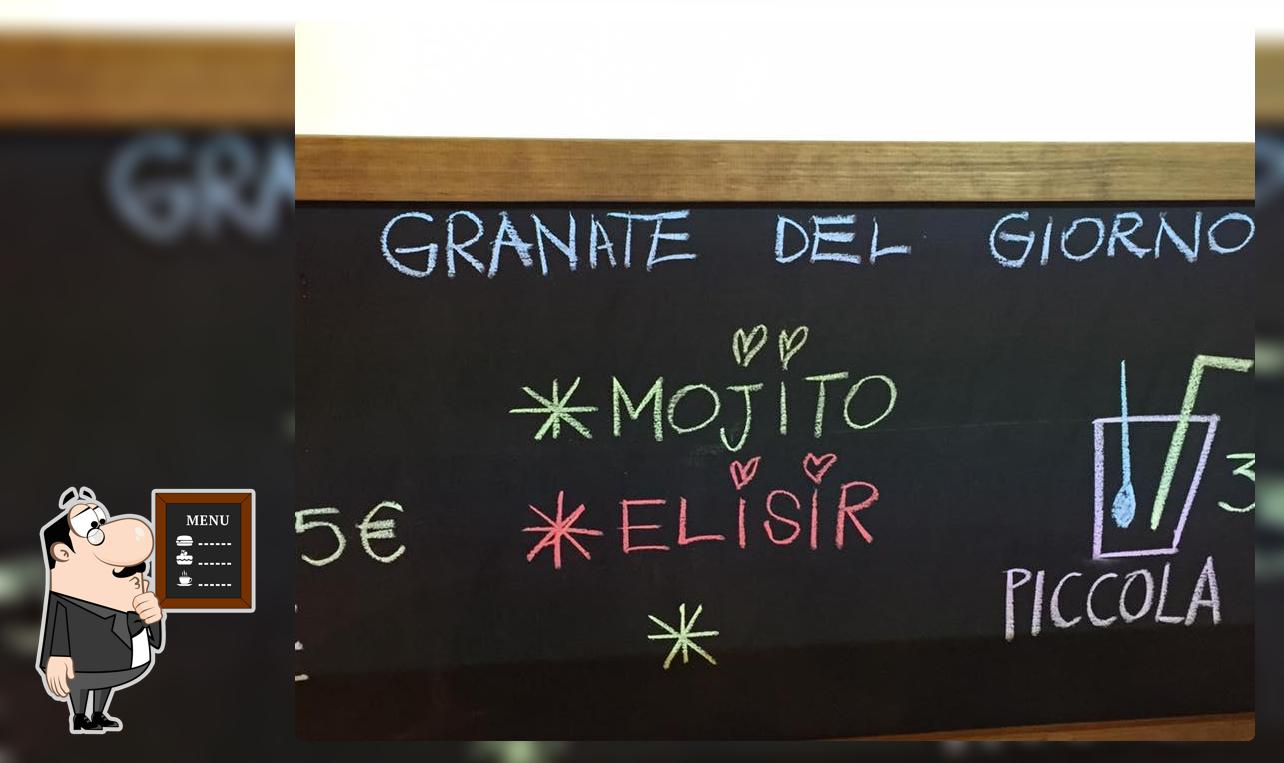 GRANATE DEL GIORNO
* MOJITO
* ELISIR
*
5€
3
PICCOLA
MENU